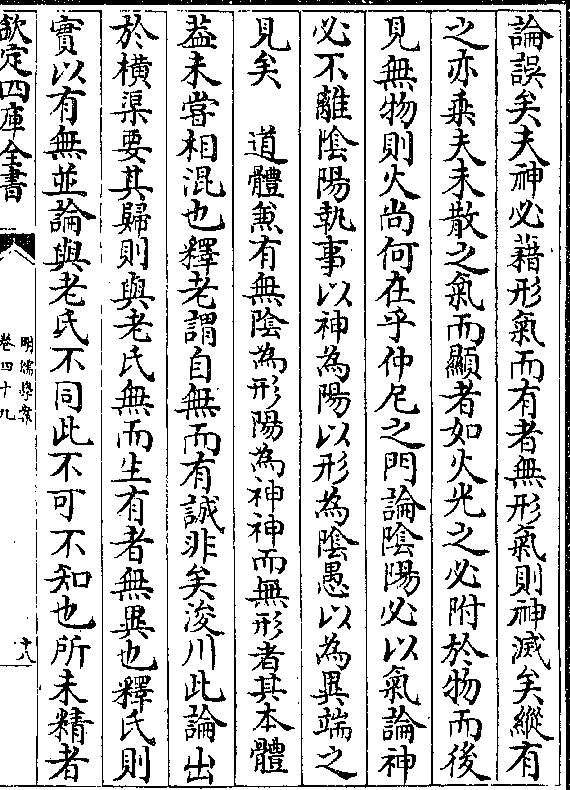 論誤矣夫神必藉形氣而有者無形氣則神滅矣縱有
之亦乘夫未散之氣而顯者如火光之必附於物而後
見無物則火尚何在乎仲尼之門論陰陽必以氣論神
必不離陰陽執事以神為陽以形為陰愚以為異端之
見矣　道體兼有無陰為形陽為神神而無形者其本體
葢未嘗相混也釋老謂自無而有誠非矣浚川此論出
於橫渠要其歸則與老氏無而生有者無異也釋氏則
實以有無並論與老氏不同此不可不知也所未精者
欽定四庫全書
明儒學案
卷四十九
十八